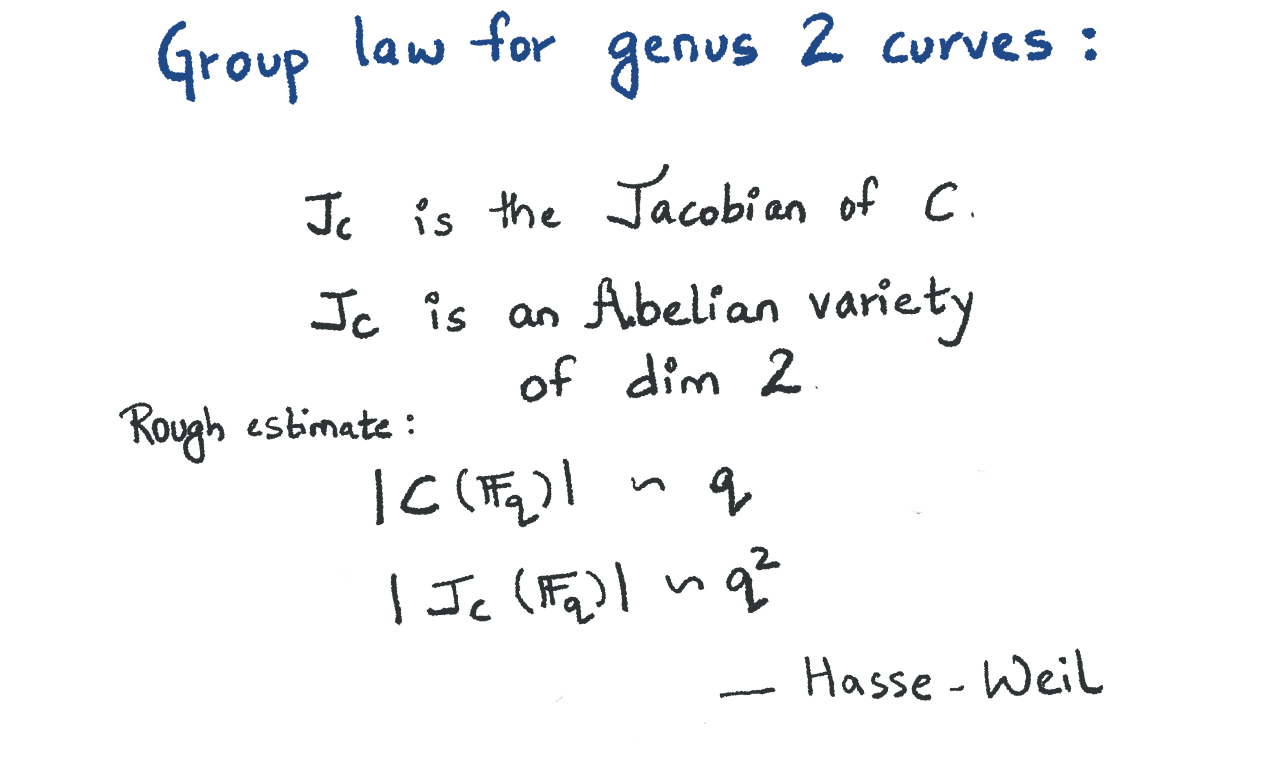 Group law for genus 2 curves :
J_C is the Jacobian of C.
J_C is an Abelian variety
of dim 2.
Rough estimate :
|C(𝔽_q)| ~ q
|J_C(𝔽_q)| ~ q²
— Hasse-Weil